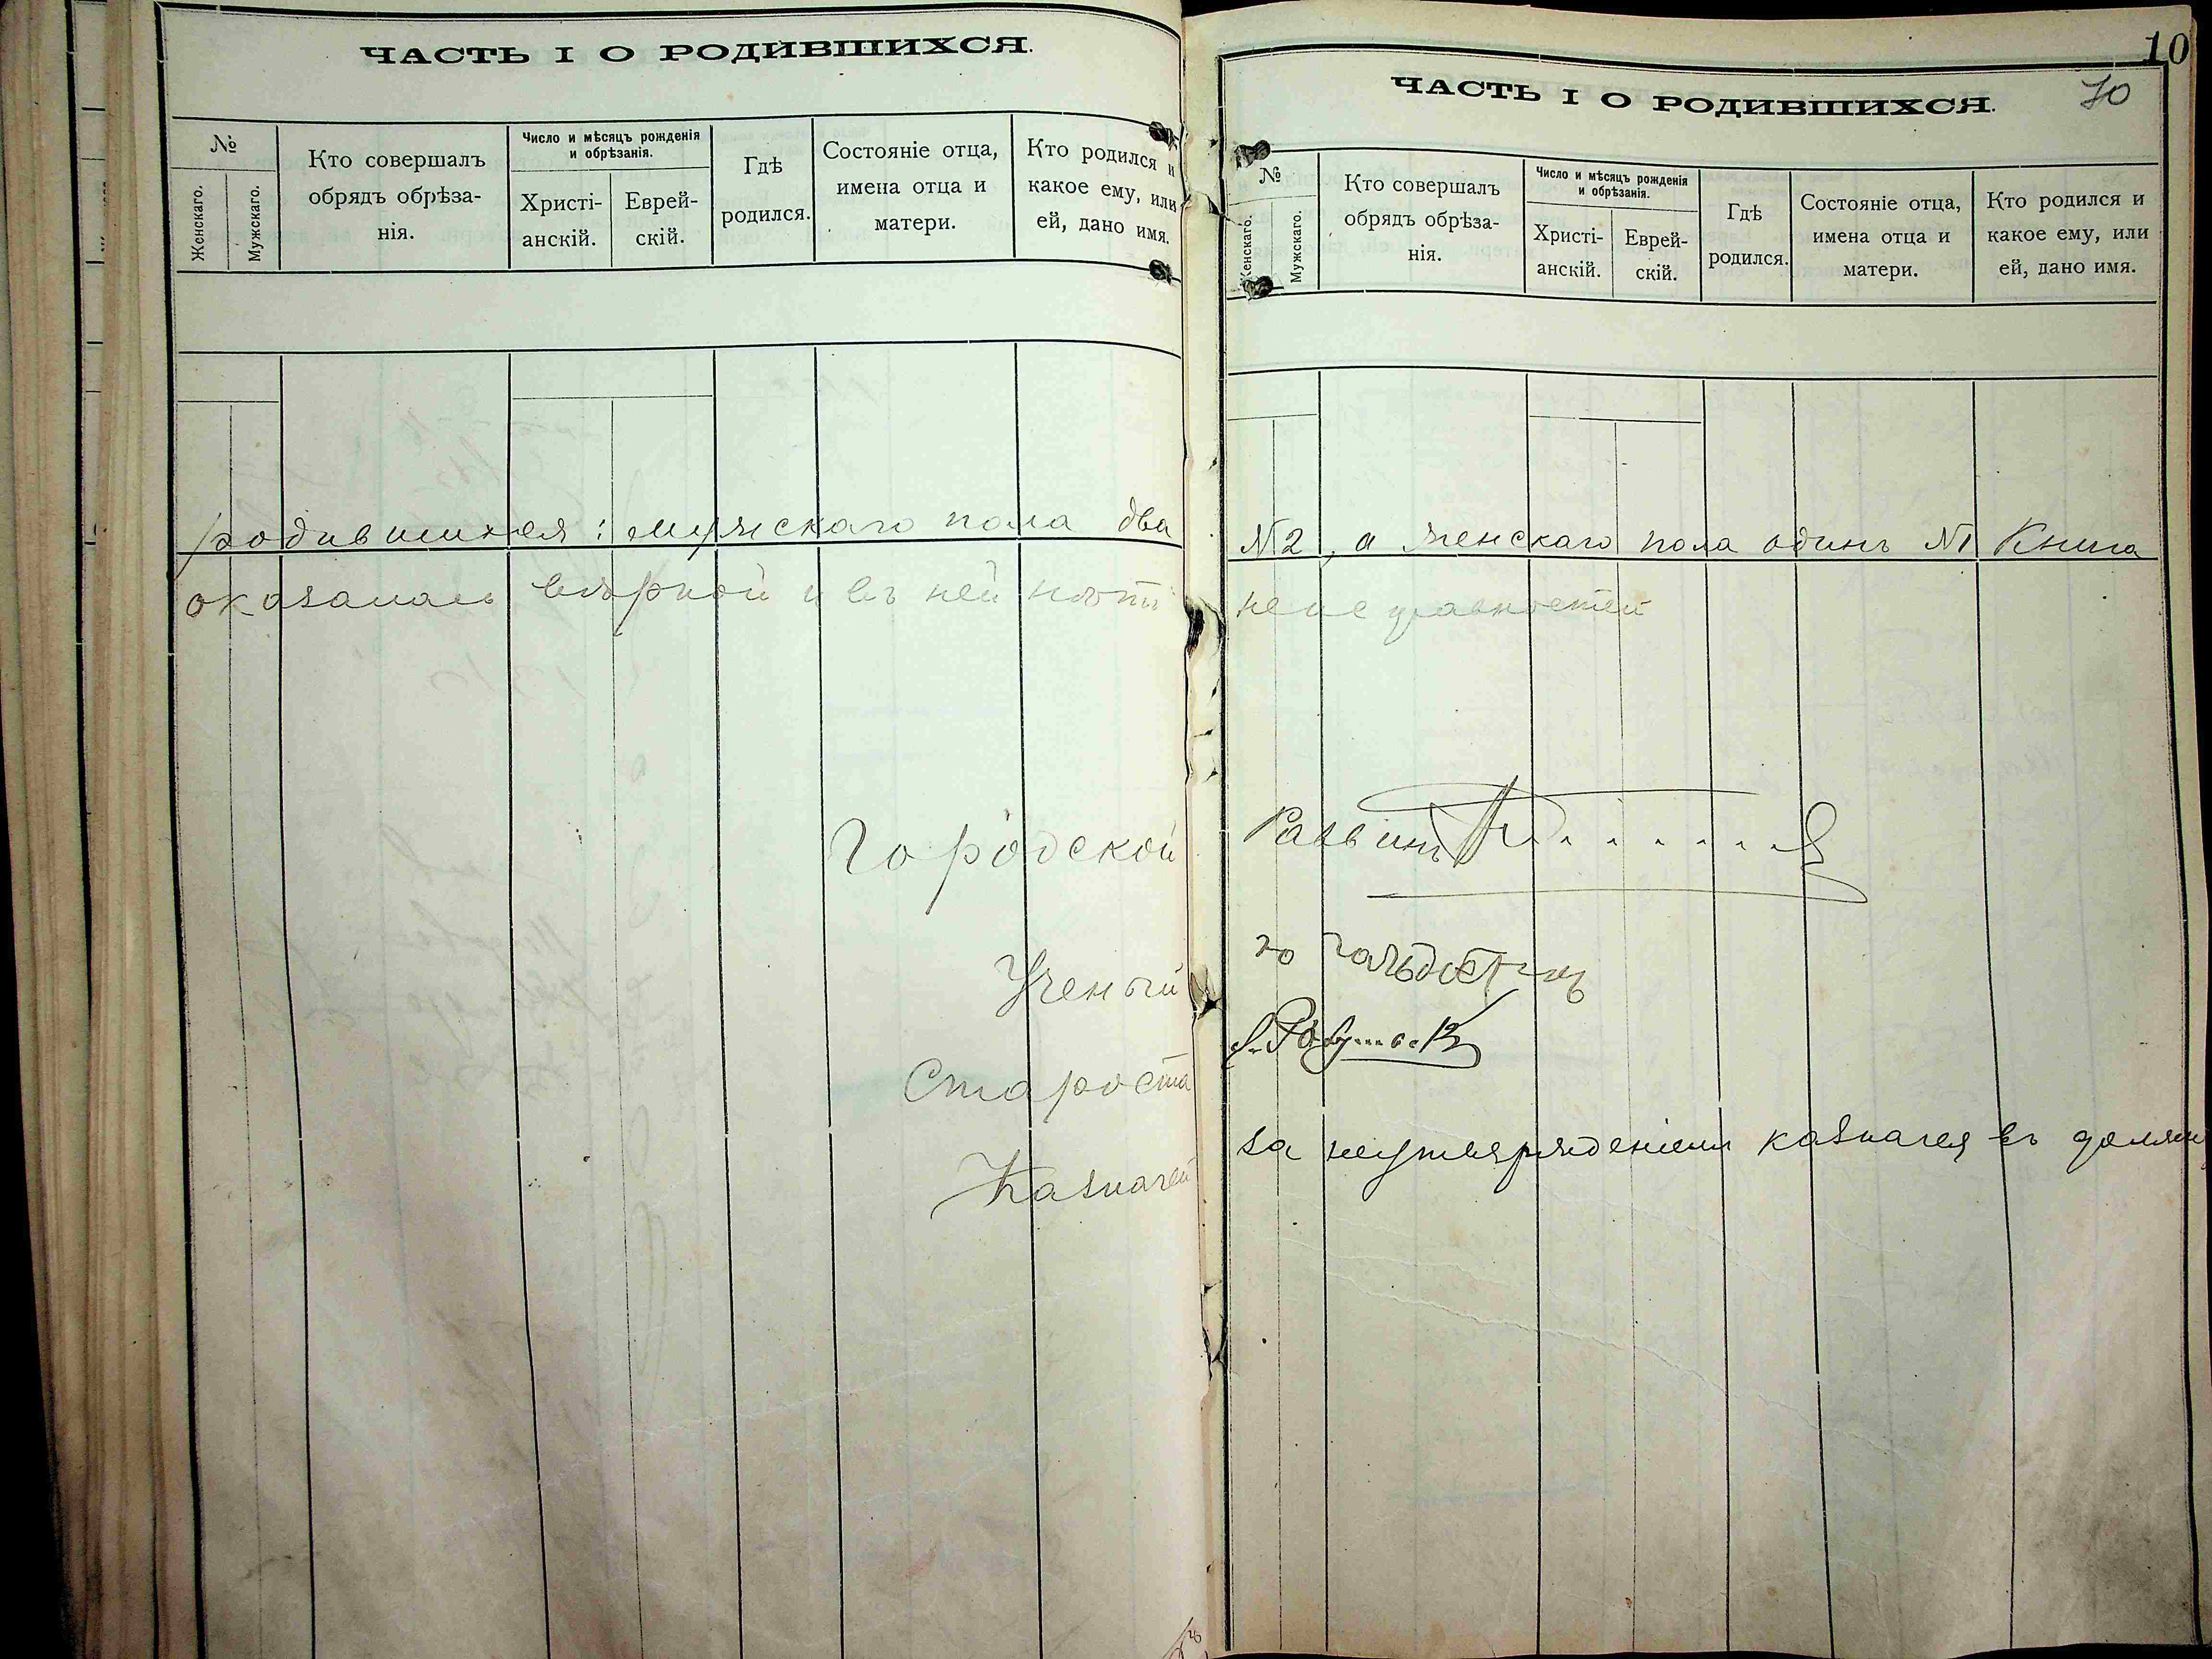 ЧАСТЬ I О РОДИВШИХСЯ.
№
Женскаго.
Мужскаго.
Кто совершалъ
обрядъ обрѣза-
нія.
Число и мѣсяцъ рожденія
и обрѣзанія.
Христі-
анскій.
Еврей-
скій.
Гдѣ
родился.
Состояніе отца,
имена отца и
матери.
Кто родился и
какое ему, или
ей, дано имя.
родившихся: мужскаго пола два
оказалась вѣрной и въ ней нѣтъ
Городской
Ученый
Староста
Казначей
10
70
ЧАСТЬ I О РОДИВШИХСЯ.
№
Женскаго.
Мужскаго.
Кто совершалъ
обрядъ обрѣза-
нія.
Число и мѣсяцъ рожденія
и обрѣзанія.
Христі-
анскій.
Еврей-
скій.
Гдѣ
родился.
Состояніе отца,
имена отца и
матери.
Кто родился и
какое ему, или
ей, дано имя.
№2, а женскаго пола одинъ №1 Книга
неисправностей
Раввинъ
за неутвержденіемъ казначея въ должн